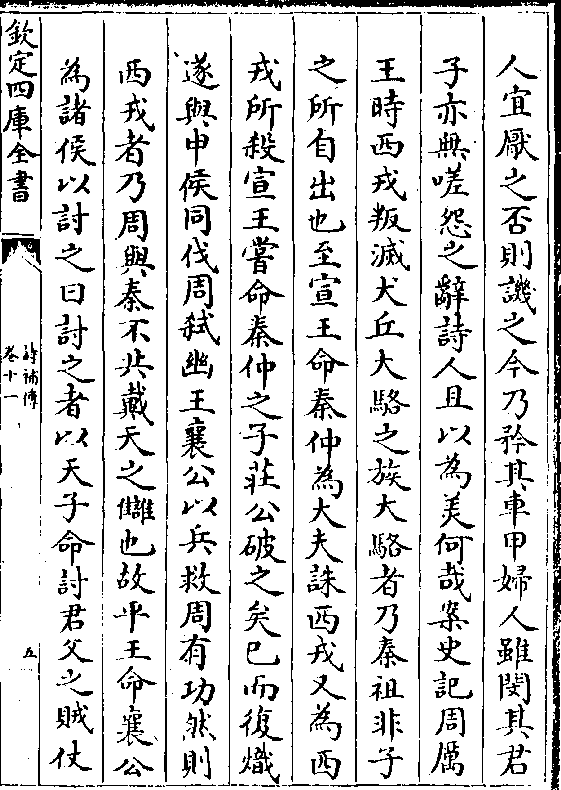 人宜厭之否則譏之今乃矜其車甲婦人雖閔其君
子亦無嗟怨之辭詩人且以為美何哉案史記周厲
王時西戎叛滅犬丘大駱之族大駱者乃秦祖非子
之所自出也至宣王命秦仲為大夫誅西戎又為西
戎所殺宣王嘗命秦仲之子莊公破之矣已而復熾
遂與申侯同伐周弒幽王襄公以兵救周有功然則
西戎者乃周與秦不共戴天之讎也故平王命襄公
為諸侯以討之曰討之者以天子命討君父之賊仗
欽定四庫全書
詩補傳
卷十一
五